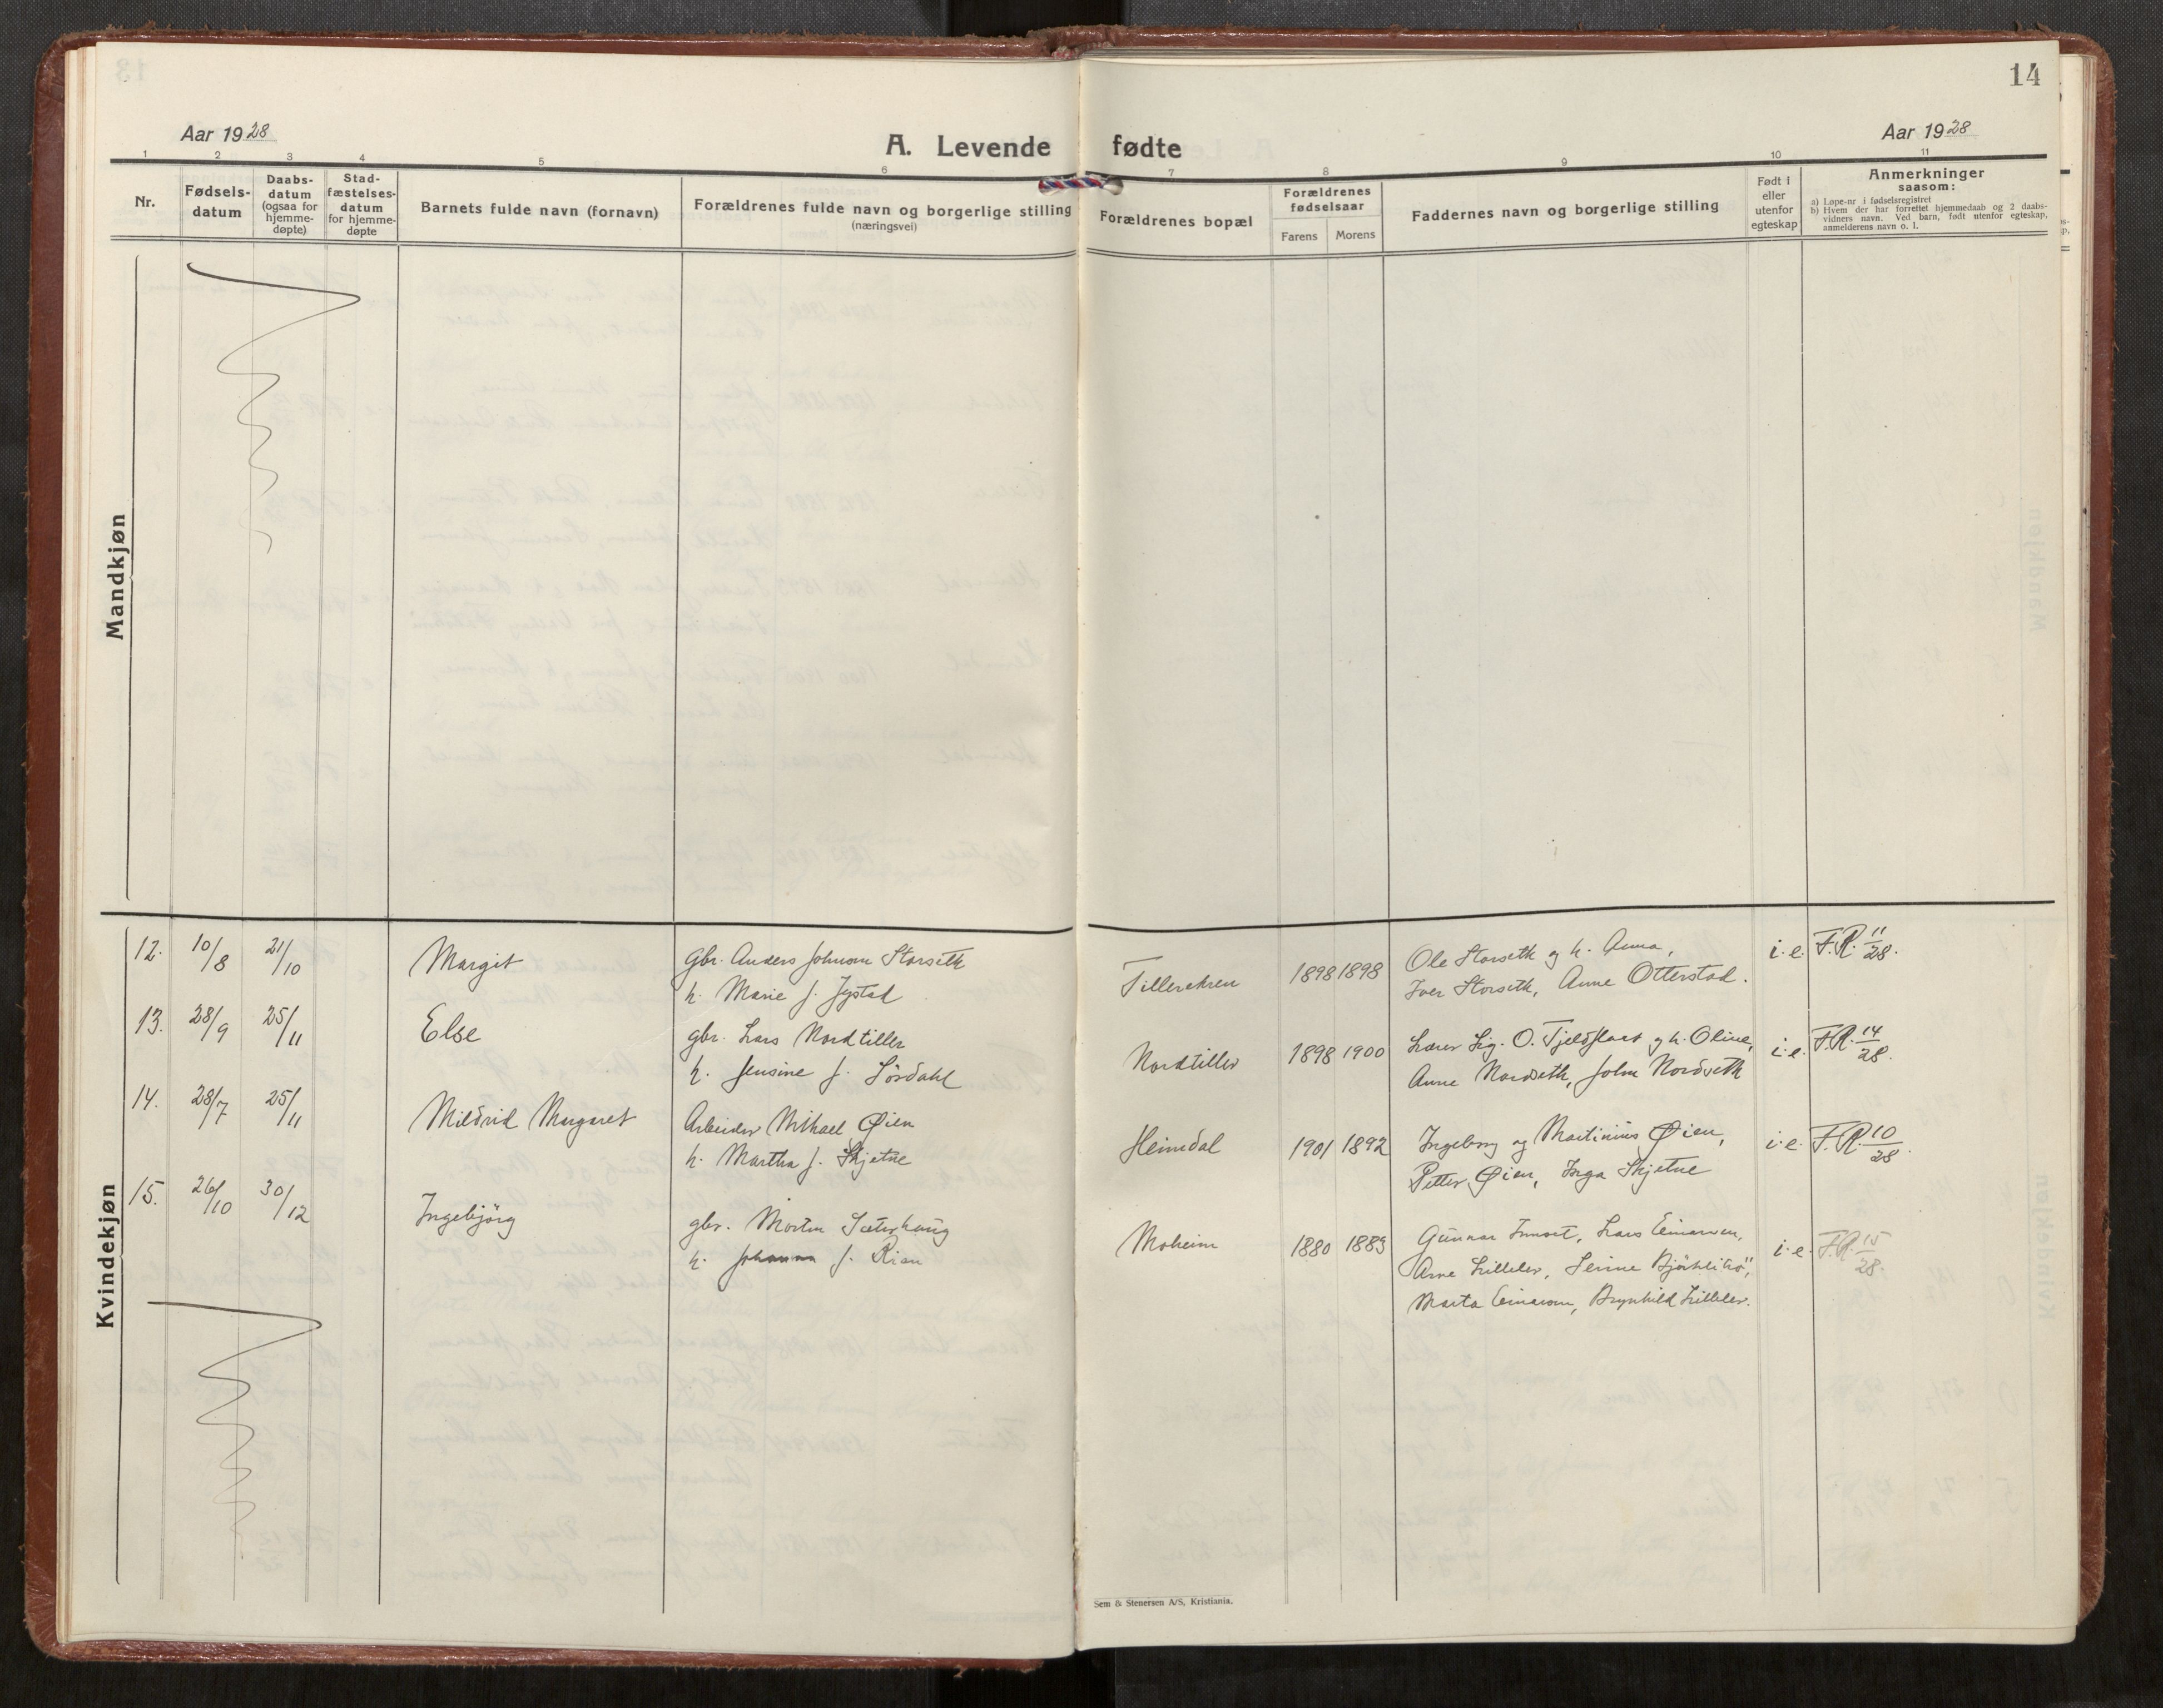 14
Aar 1928
A. Levende fødte
Aar 1928
1 2 3 4 5 6 7 8 9 10 11
Nr.
Fødsels-
datum
Daabs-
datum
(ogsaa for
hjemme-
døpte)
Stad-
fæstelses-
datum
for hjemme-
døpte
Barnets fulde navn (fornavn)
Forældrenes fulde navn og borgerlige stilling
(næringsvei)
Forældrenes bopæl
Forældrenes
fødselsaar
Farens Morens
Faddernes navn og borgerlige stilling
Født i
eller
utenfor
egteskap
Anmerkninger
saasom:
a) Løpe-nr i fødselsregistret
b) Hvem der har forrettet hjemmedaab og 2 daabs-
vidners navn. Ved barn, født utenfor egteskap,
anmelderens navn o. l.
Mandkjøn
Kvindekjøn
12. 10/8 21/10 Margit
Gbr. Anders Johnson Storseth
h. Marie f. Jystad
Tillerekren 1898 1898
Ole Storseth og h. Anna,
Iver Storseth, Anne Otterstad.
i. e. F.R. 11/28.
13. 28/9 25/11 Else
gbr. Lars Nordtiller
h. Jensine f. Sørdahl
Nordtiller 1898 1900
Lærer Sig. O. Tjeldflaat og h. Oline,
Anne Nordseth, John Nordseth
i. e. F.R. 14/28.
14. 28/7 25/11 Mildrid Margaret
Arbeider Mikael Øien
h. Martha f. Skjetne
Heimdal 1901 1892
Ingeborg og Martinius Øien,
Petter Øien, Inga Skjetne
i. e. F.R. 10/28.
15. 26/10 30/12 Ingebjörg
gbr. Morten Sæterhaug
h. Johanna f. Rian
Moheim 1880 1883
Gunnar Innset, Lars Einarsen,
Arne Lillelev, Serine
Marta Einarsen, Brynhild Lillelev.
i. e. F.R. 15/28.
Sem & Stenersen A/S, Kristiania.